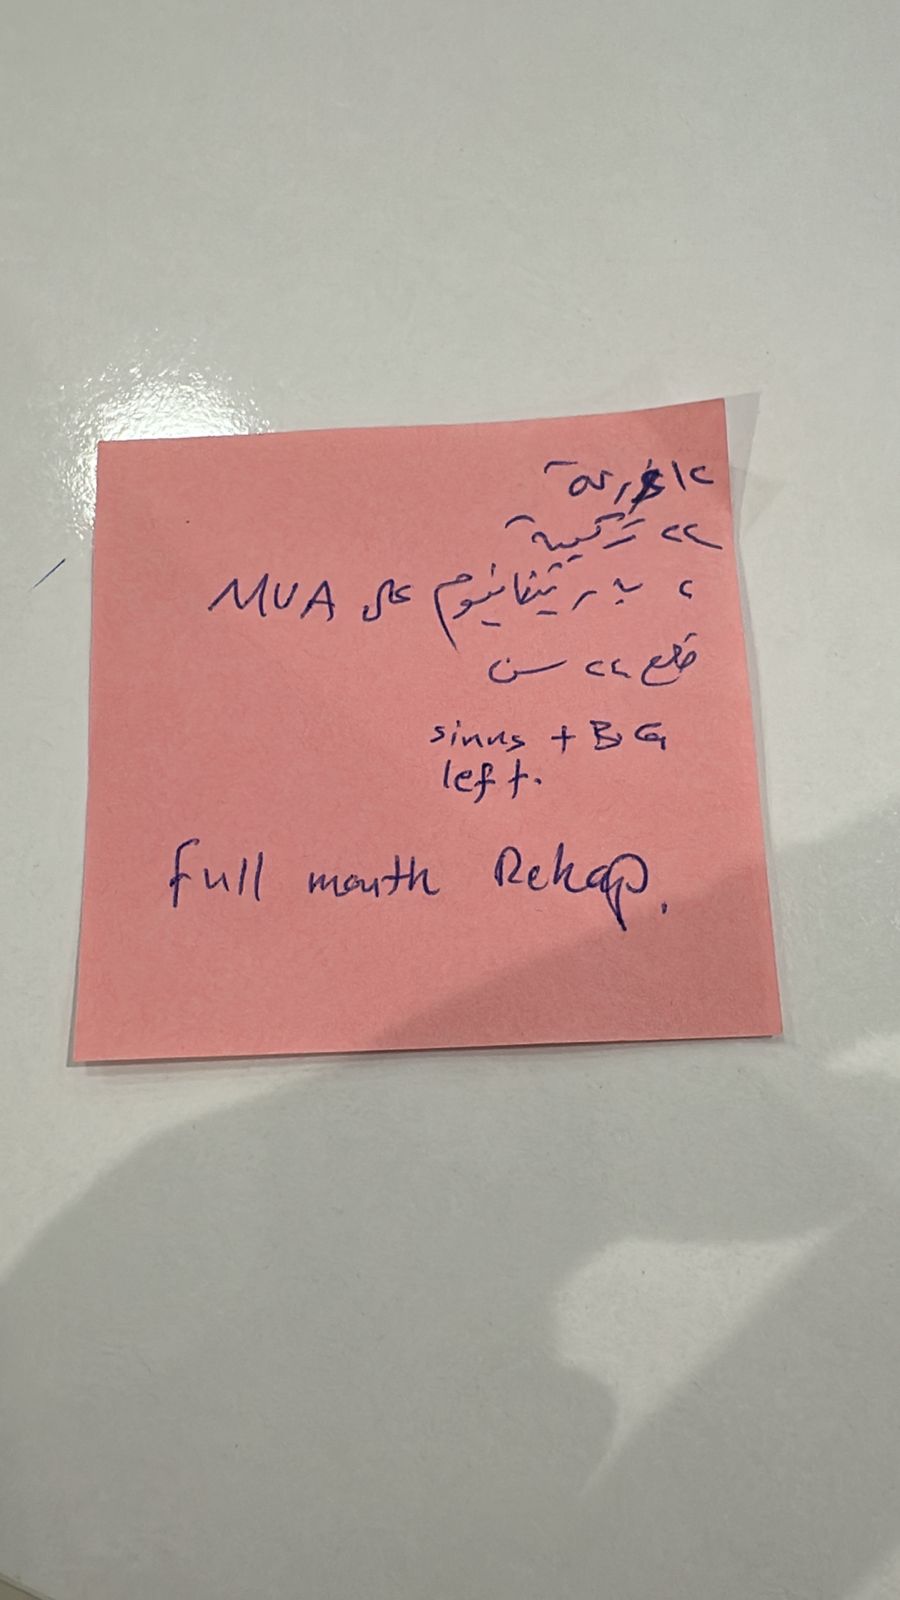 ١٥ زرعة
٢٢ تركيبة
٢ بار تيتانيوم على MUA
خلع ٢٢ سن
sinus + BG
left.
full mouth Rehap.